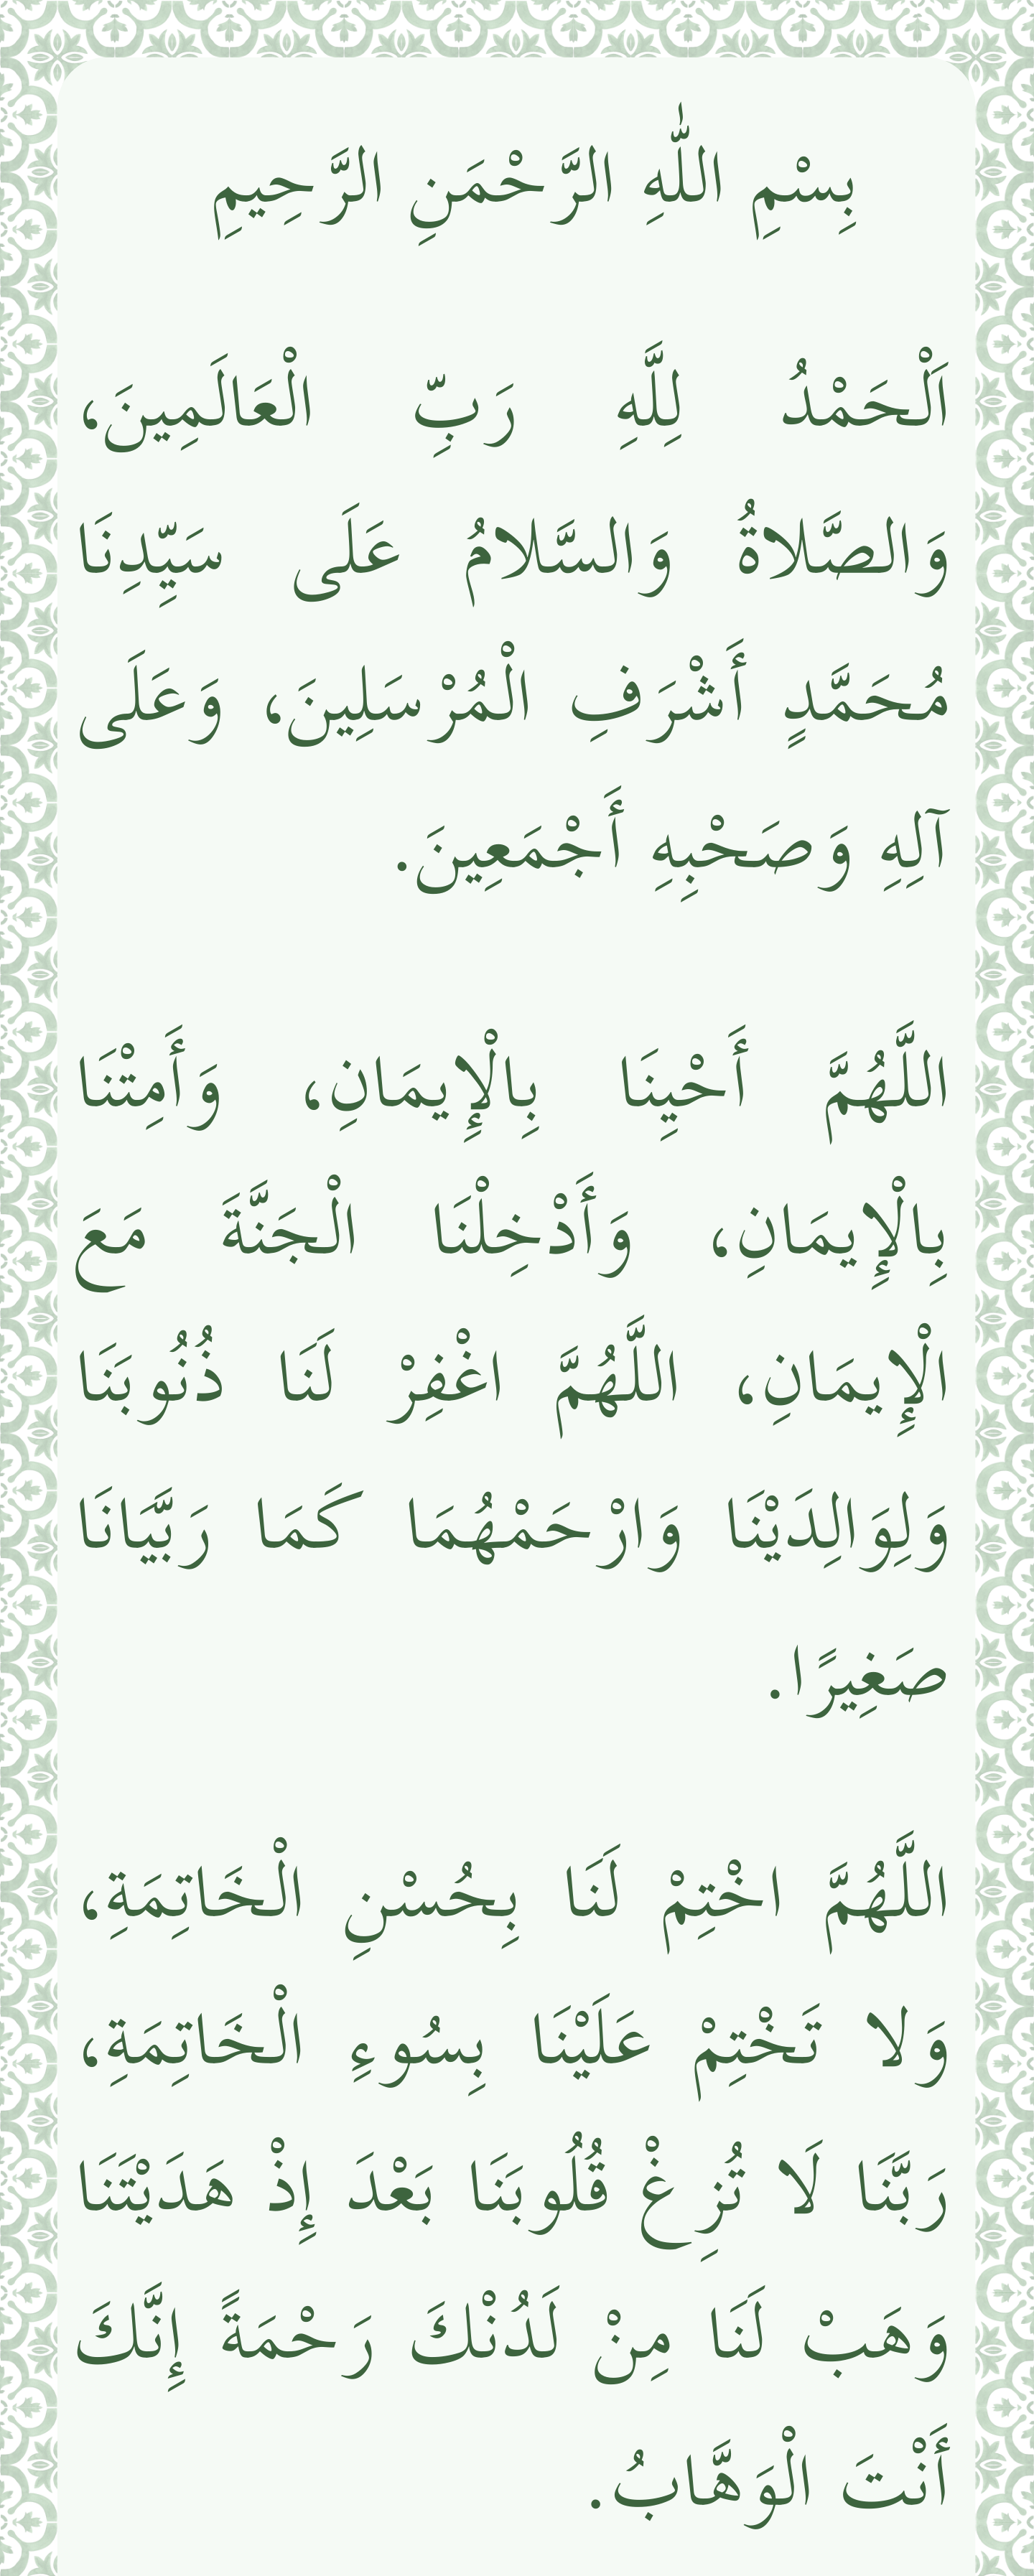 بِسْمِ اللّٰهِ الرَّحْمَنِ الرَّحِيمِ
اَلْحَمْدُ لِلَّهِ رَبِّ الْعَالَمِينَ،
وَالصَّلاةُ وَالسَّلامُ عَلَى سَيِّدِنَا
مُحَمَّدٍ أَشْرَفِ الْمُرْسَلِينَ، وَعَلَى
آلِهِ وَصَحْبِهِ أَجْمَعِينَ.
اللَّهُمَّ أَحْيِنَا بِالْإِيمَانِ، وَأَمِتْنَا
بِالْإِيمَانِ، وَأَدْخِلْنَا الْجَنَّةَ مَعَ
الْإِيمَانِ، اللَّهُمَّ اغْفِرْ لَنَا ذُنُوبَنَا
وَلِوَالِدَيْنَا وَارْحَمْهُمَا كَمَا رَبَّيَانَا
صَغِيرًا.
اللَّهُمَّ اخْتِمْ لَنَا بِحُسْنِ الْخَاتِمَةِ،
وَلا تَخْتِمْ عَلَيْنَا بِسُوءِ الْخَاتِمَةِ،
رَبَّنَا لَا تُزِغْ قُلُوبَنَا بَعْدَ إِذْ هَدَيْتَنَا
وَهَبْ لَنَا مِنْ لَدُنْكَ رَحْمَةً إِنَّكَ
أَنْتَ الْوَهَّابُ.